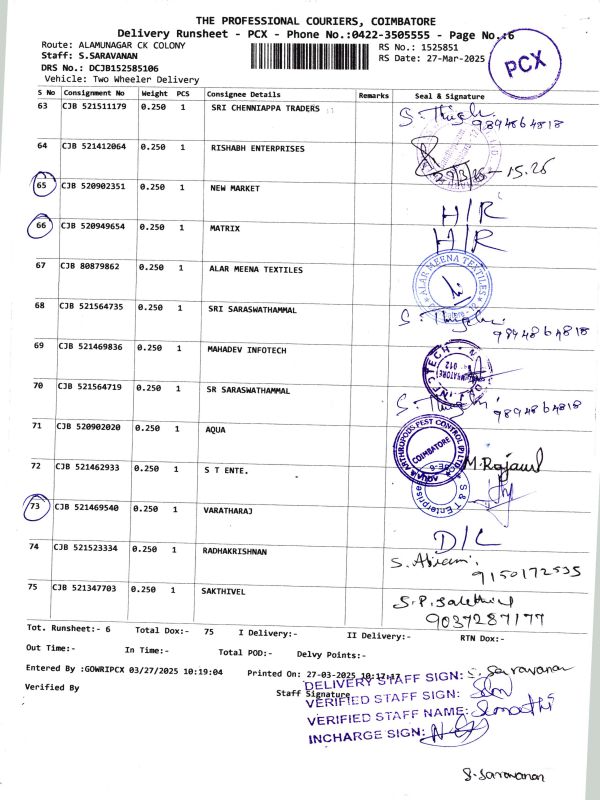 THE PROFESSIONAL COURIERS, COIMBATORE
Delivery Runsheet - PCX - Phone No.:0422-3505555 - Page No.:6
Route: ALAMUNAGAR CK COLONY RS No.: 1525851
Staff: S.SARAVANAN RS Date: 27-Mar-2025
DRS No.: DCJB152585106
Vehicle: Two Wheeler Delivery
PCX
S No Consignment No Weight PCS Consignee Details Remarks Seal & Signature
63 CJB 521511179 0.250 1 SRI CHENNIAPPA TRADERS 9894864818
64 CJB 521412064 0.250 1 RISHABH ENTERPRISES 15.25
65 CJB 520902351 0.250 1 NEW MARKET H/R
66 CJB 520949654 0.250 1 MATRIX H/R
67 CJB 80879862 0.250 1 ALAR MEENA TEXTILES ALAR MEENA TEXTILES
68 CJB 521564735 0.250 1 SRI SARASWATHAMMAL 9894864818
69 CJB 521469836 0.250 1 MAHADEV INFOTECH
70 CJB 521564719 0.250 1 SR SARASWATHAMMAL 9894864818
71 CJB 520902020 0.250 1 AQUA AQUAA ARTHRUPODS PEST CONTROL (P) LTD COIMBATORE
72 CJB 521462933 0.250 1 S T ENTE. M. Rajaul S & T Enterprises
73 CJB 521469540 0.250 1 VARATHARAJ D/L
74 CJB 521523334 0.250 1 RADHAKRISHNAN S. Abirami 9150172535
75 CJB 521347703 0.250 1 SAKTHIVEL S.P. Sakthivel 9037287177
Tot. Runsheet:- 6 Total Dox:- 75 I Delivery:- II Delivery:- RTN Dox:-
Out Time:- In Time:- Total POD:- Delvy Points:-
Entered By :GOWRIPCX 03/27/2025 10:19:04 Printed On: 27-03-2025 10:17:17
Verified By Staff Signature
DELIVERY STAFF SIGN: S. Saravanan
VERIFIED STAFF SIGN:
VERIFIED STAFF NAME:
INCHARGE SIGN:
S. Saravanan